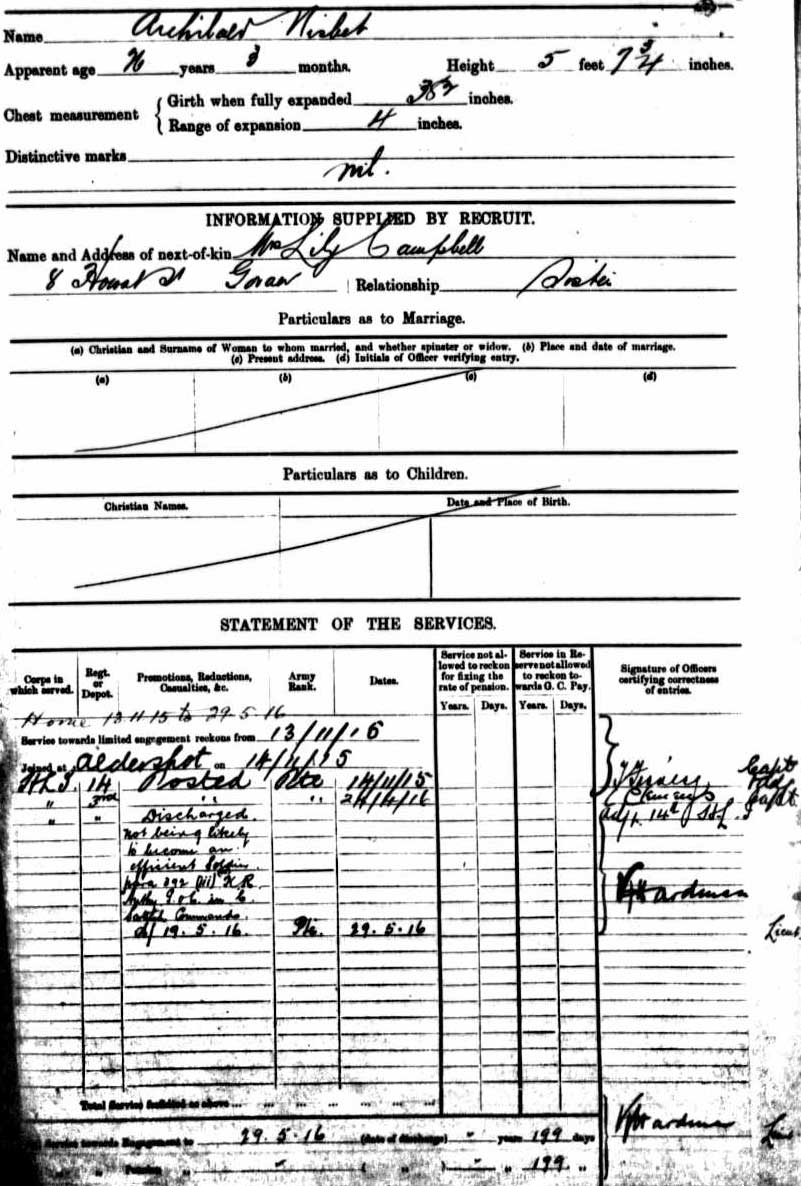 Name Archibald Nisbet
Apparent age years 3 months. Height 5 feet 7 3/4 inches.
Chest measurement
Girth when fully expanded inches.
Range of expansion 4 inches.
Distinctive marks
nil.
INFORMATION SUPPLIED BY RECRUIT.
Name and Address of next-of-kin Mrs Lily Campbell
8 St Govan Relationship Sister
Particulars as to Marriage.
(a) Christian and Surname of Woman to whom married, and whether spinster or widow. (b) Place and date of marriage.
(c) Present address. (d) Initials of Officer verifying entry.
(a) (b) (c) (d)
Particulars as to Children.
Christian Names. Date and Place of Birth.
STATEMENT OF THE SERVICES.
Corps in which served. Regt. or Depot. Promotions, Reductions, Casualties, &c. Army Rank. Dates. Service not allowed to reckon for fixing the rate of pension. Service in Reserve not allowed to reckon towards G. C. Pay. Signature of Officers certifying correctness of entries.
Years. Days. Years. Days.
Home 13 11 15 to 29 5 16
Service towards limited engagement reckons from 13/11/15
Joined at Aldershot on 14/11/15
H.L.I. 14 Posted Pte 14/11/15 Capt
" 3rd " " 24/4/16 Capt
" " Discharged. Adjt. 14th H.L.I
not being likely
to become an
efficient Soldier
para 392 (iii) K R
Command
d/ 19. 5. 16. Pte. 29. 5. 16 Hardman Lieut.
Total Service forfeited as above
Service towards Engagement to 29. 5. 16 (date of discharge) - years 199 days Hardman
" Pension " - ( " ) - " 199 "